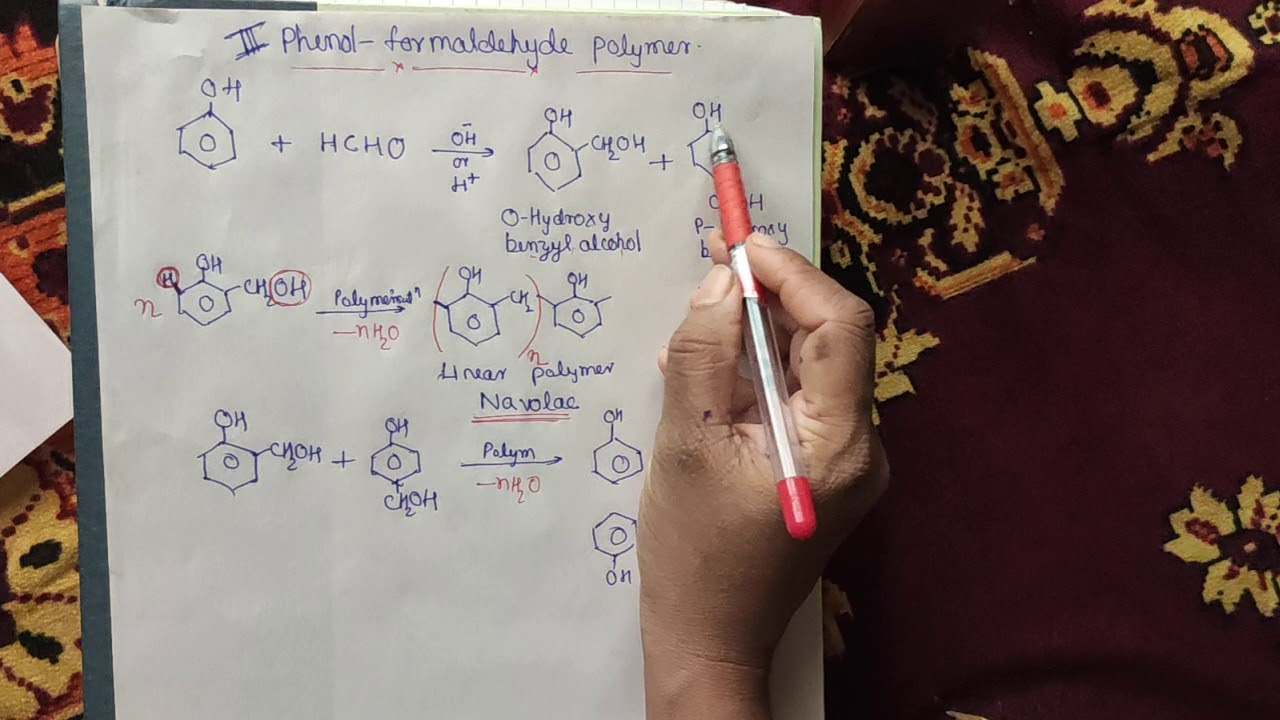 III Phenol-formaldehyde polymer.
OH
+ HCHO OH⁻ or H⁺ OH CH₂OH + OH
O-Hydroxy
benzyl alcohol
n H OH CH₂OH Polymerisatⁿ -nH₂O ( OH CH₂ )n OH
Linear polymer
Navolac
OH CH₂OH + OH CH₂OH Polym -nH₂O OH
OH